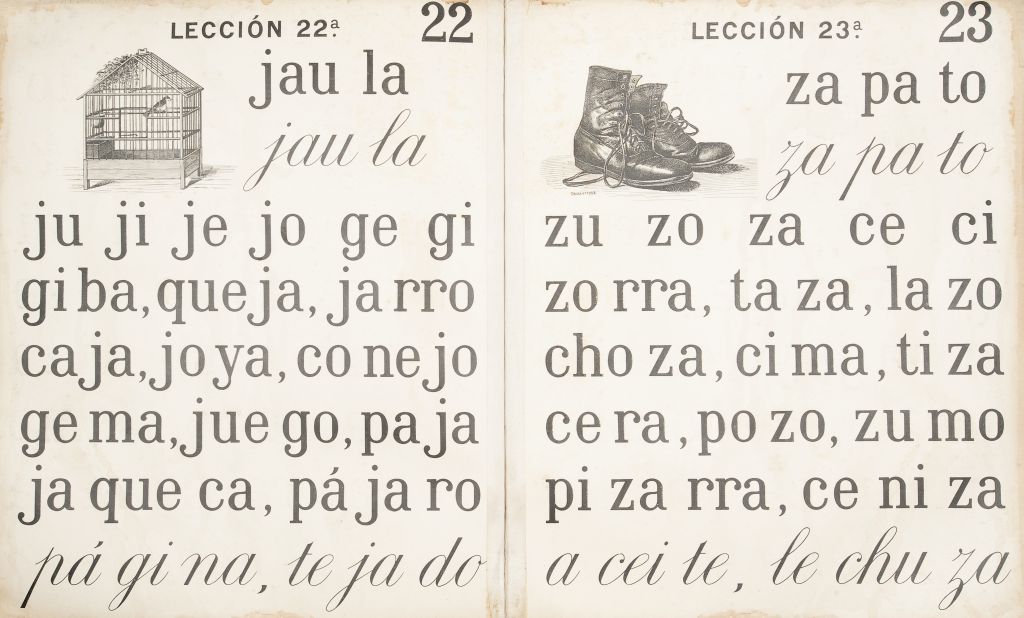 LECCIÓN 22ª.
22
jau la
jau la
ju ji je jo ge gi
gi ba, que ja, ja rro
ca ja, jo ya, co ne jo
ge ma, jue go, pa ja
ja que ca, pá ja ro
pá gi na, te ja do
LECCIÓN 23ª.
23
za pa to
za pa to
zu zo za ce ci
zo rra, ta za, la zo
cho za, ci ma, ti za
ce ra, po zo, zu mo
pi za rra, ce ni za
a cei te, le chu za